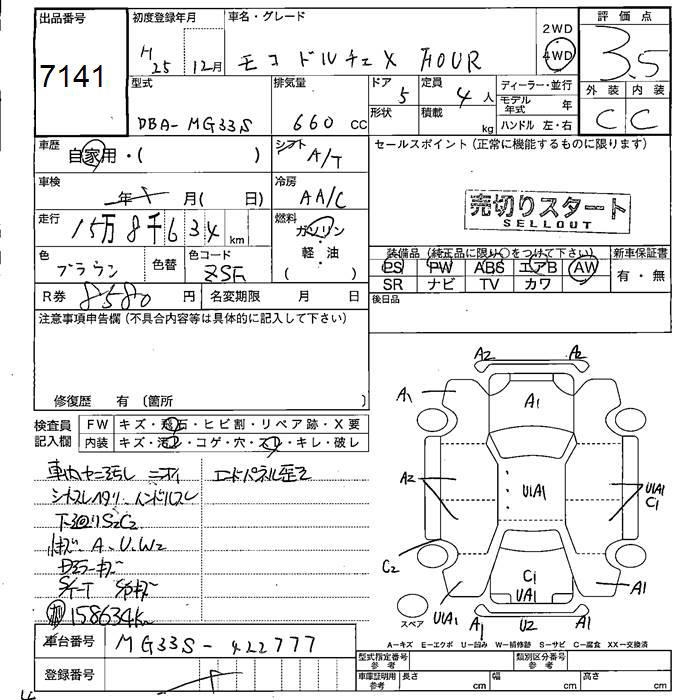 出品番号
7141
初度登録年月
H25 12月
車名・グレード
モコ ドルチェX FOUR
2WD
4WD
評価点
3.5
外装 内装
C C
型式
DBA-MG33S
排気量
660 cc
ドア 5
形状
定員 4人
積載 kg
ディーラー・並行
モデル年式 年
ハンドル 左・右
車歴
自家用・( )
シフト
A/T
セールスポイント(正常に機能するものに限ります)
売切りスタート
SELLOUT
車検
年 月( 日)
冷房
AA/C
走行
15万8千634km
燃料
ガソリン
軽・油
( )
色
ブラウン
色替
色コード
R券 8580円
名変期限 月 日
装備品(純正品に限り○をつけて下さい)
新車保証書
PS PW ABS エアB AW
SR ナビ TV カワ
有・無
後日品
注意事項申告欄(不具合内容等は具体的に記入して下さい)
修復歴 有〔箇所 〕
検査員記入欄
FW キズ・飛石・ヒビ割・リペア跡・X要
内装 キズ・汚れ・コゲ・穴・スレ・キレ・破レ
車内ヤニ汚れ ニオイ
シートスレヘタリ ハンドルスレ
下廻りS2C2
A.U.W2
158634K
A2 A2
A1 A1
A2 U1A1 U1A1
C1
C2 C1
U1A1
U1A1 A1
A1 U2 A1
スペア
A-キズ E-エクボ U-凹み W-補修跡 S-サビ C-腐食 XX-交換済
車台番号 MG33S-422777
登録番号
型式指定番号 参考
類別区分番号 参考
車庫証明用 参考
長さ cm 幅 cm 高さ cm